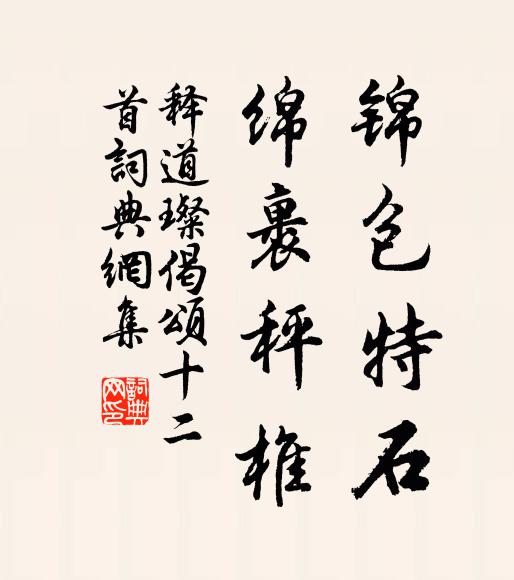 锦包特石
绵裹秤椎
释道璨偈頌十二
首詞典網集
詞典網印